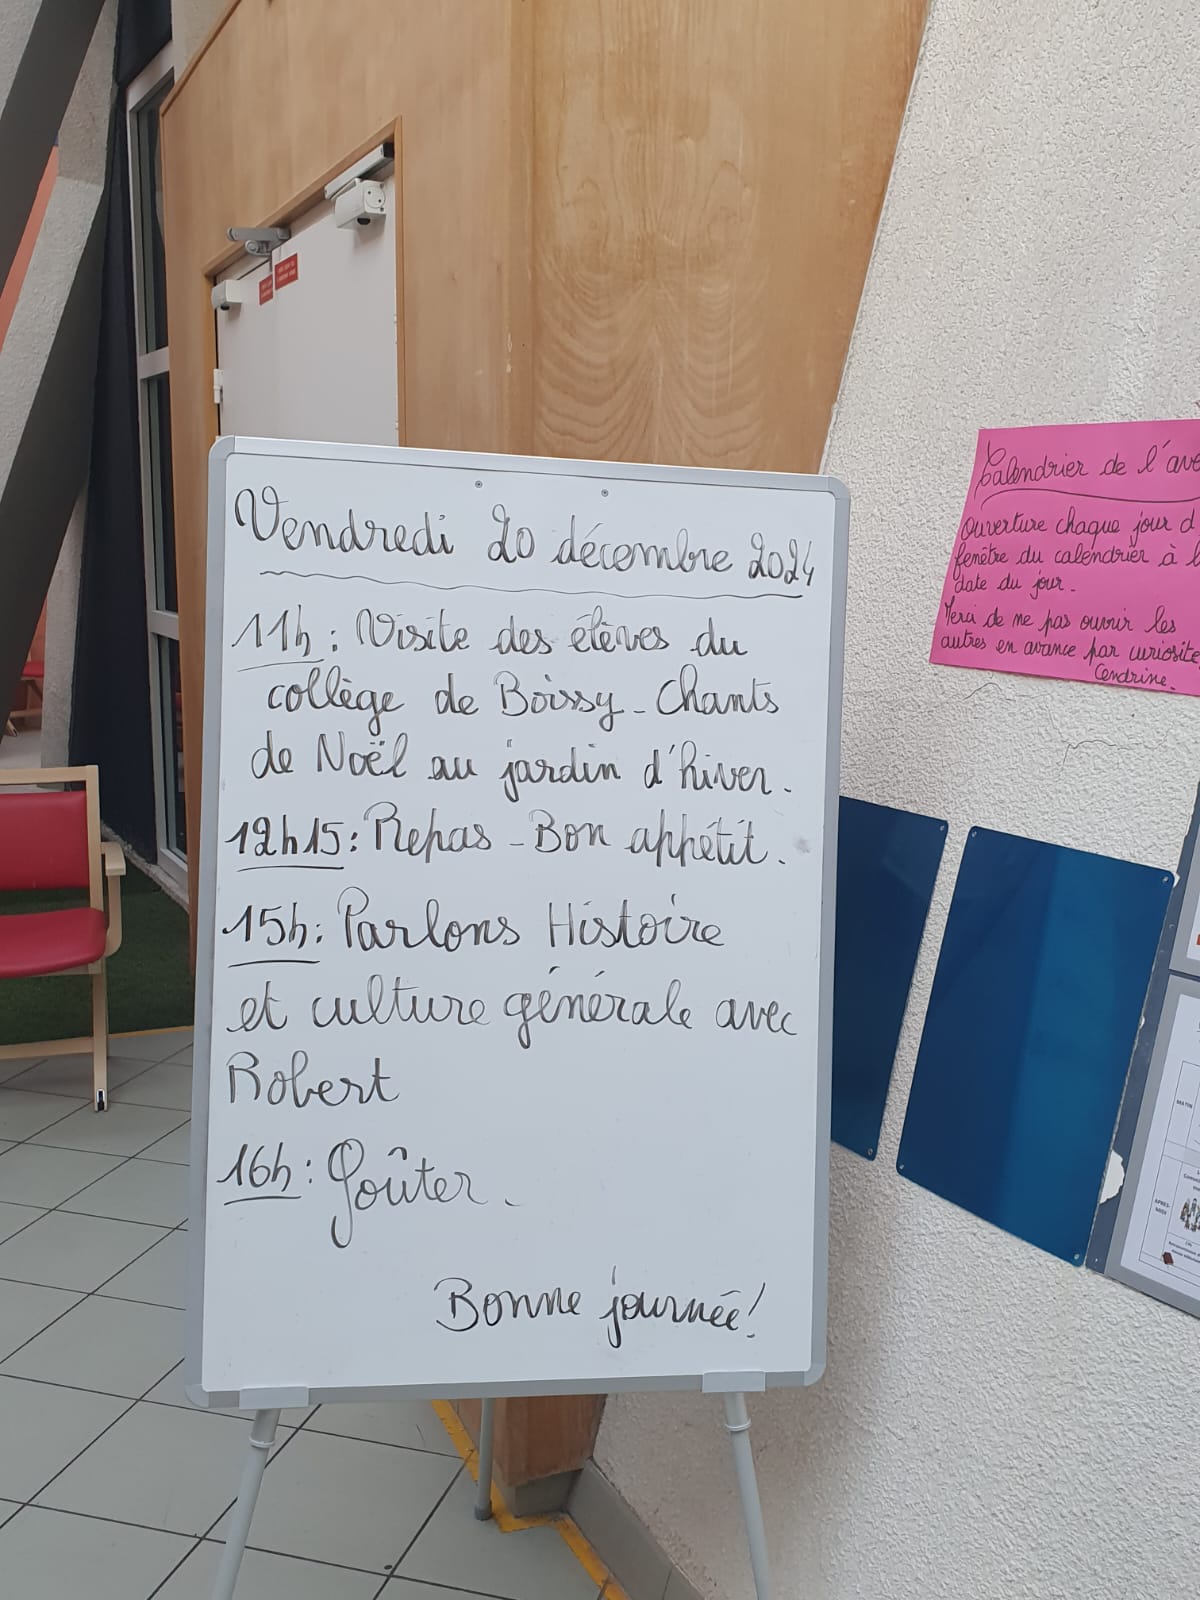 Vendredi 20 décembre 2024
11h : Visite des élèves du
collège de Boissy - Chants
de Noël au jardin d'hiver.
12h15 : Repas - Bon appétit.
15h : Parlons Histoire
et culture générale avec
Robert
16h : Goûter.
Bonne journée !
Calendrier de l'ave
Ouverture chaque jour d
fenêtre du calendrier à l
date du jour.
Merci de ne pas ouvrir les
autres en avance par curiosité
Cendrine.
MATIN
APRES-
MIDI